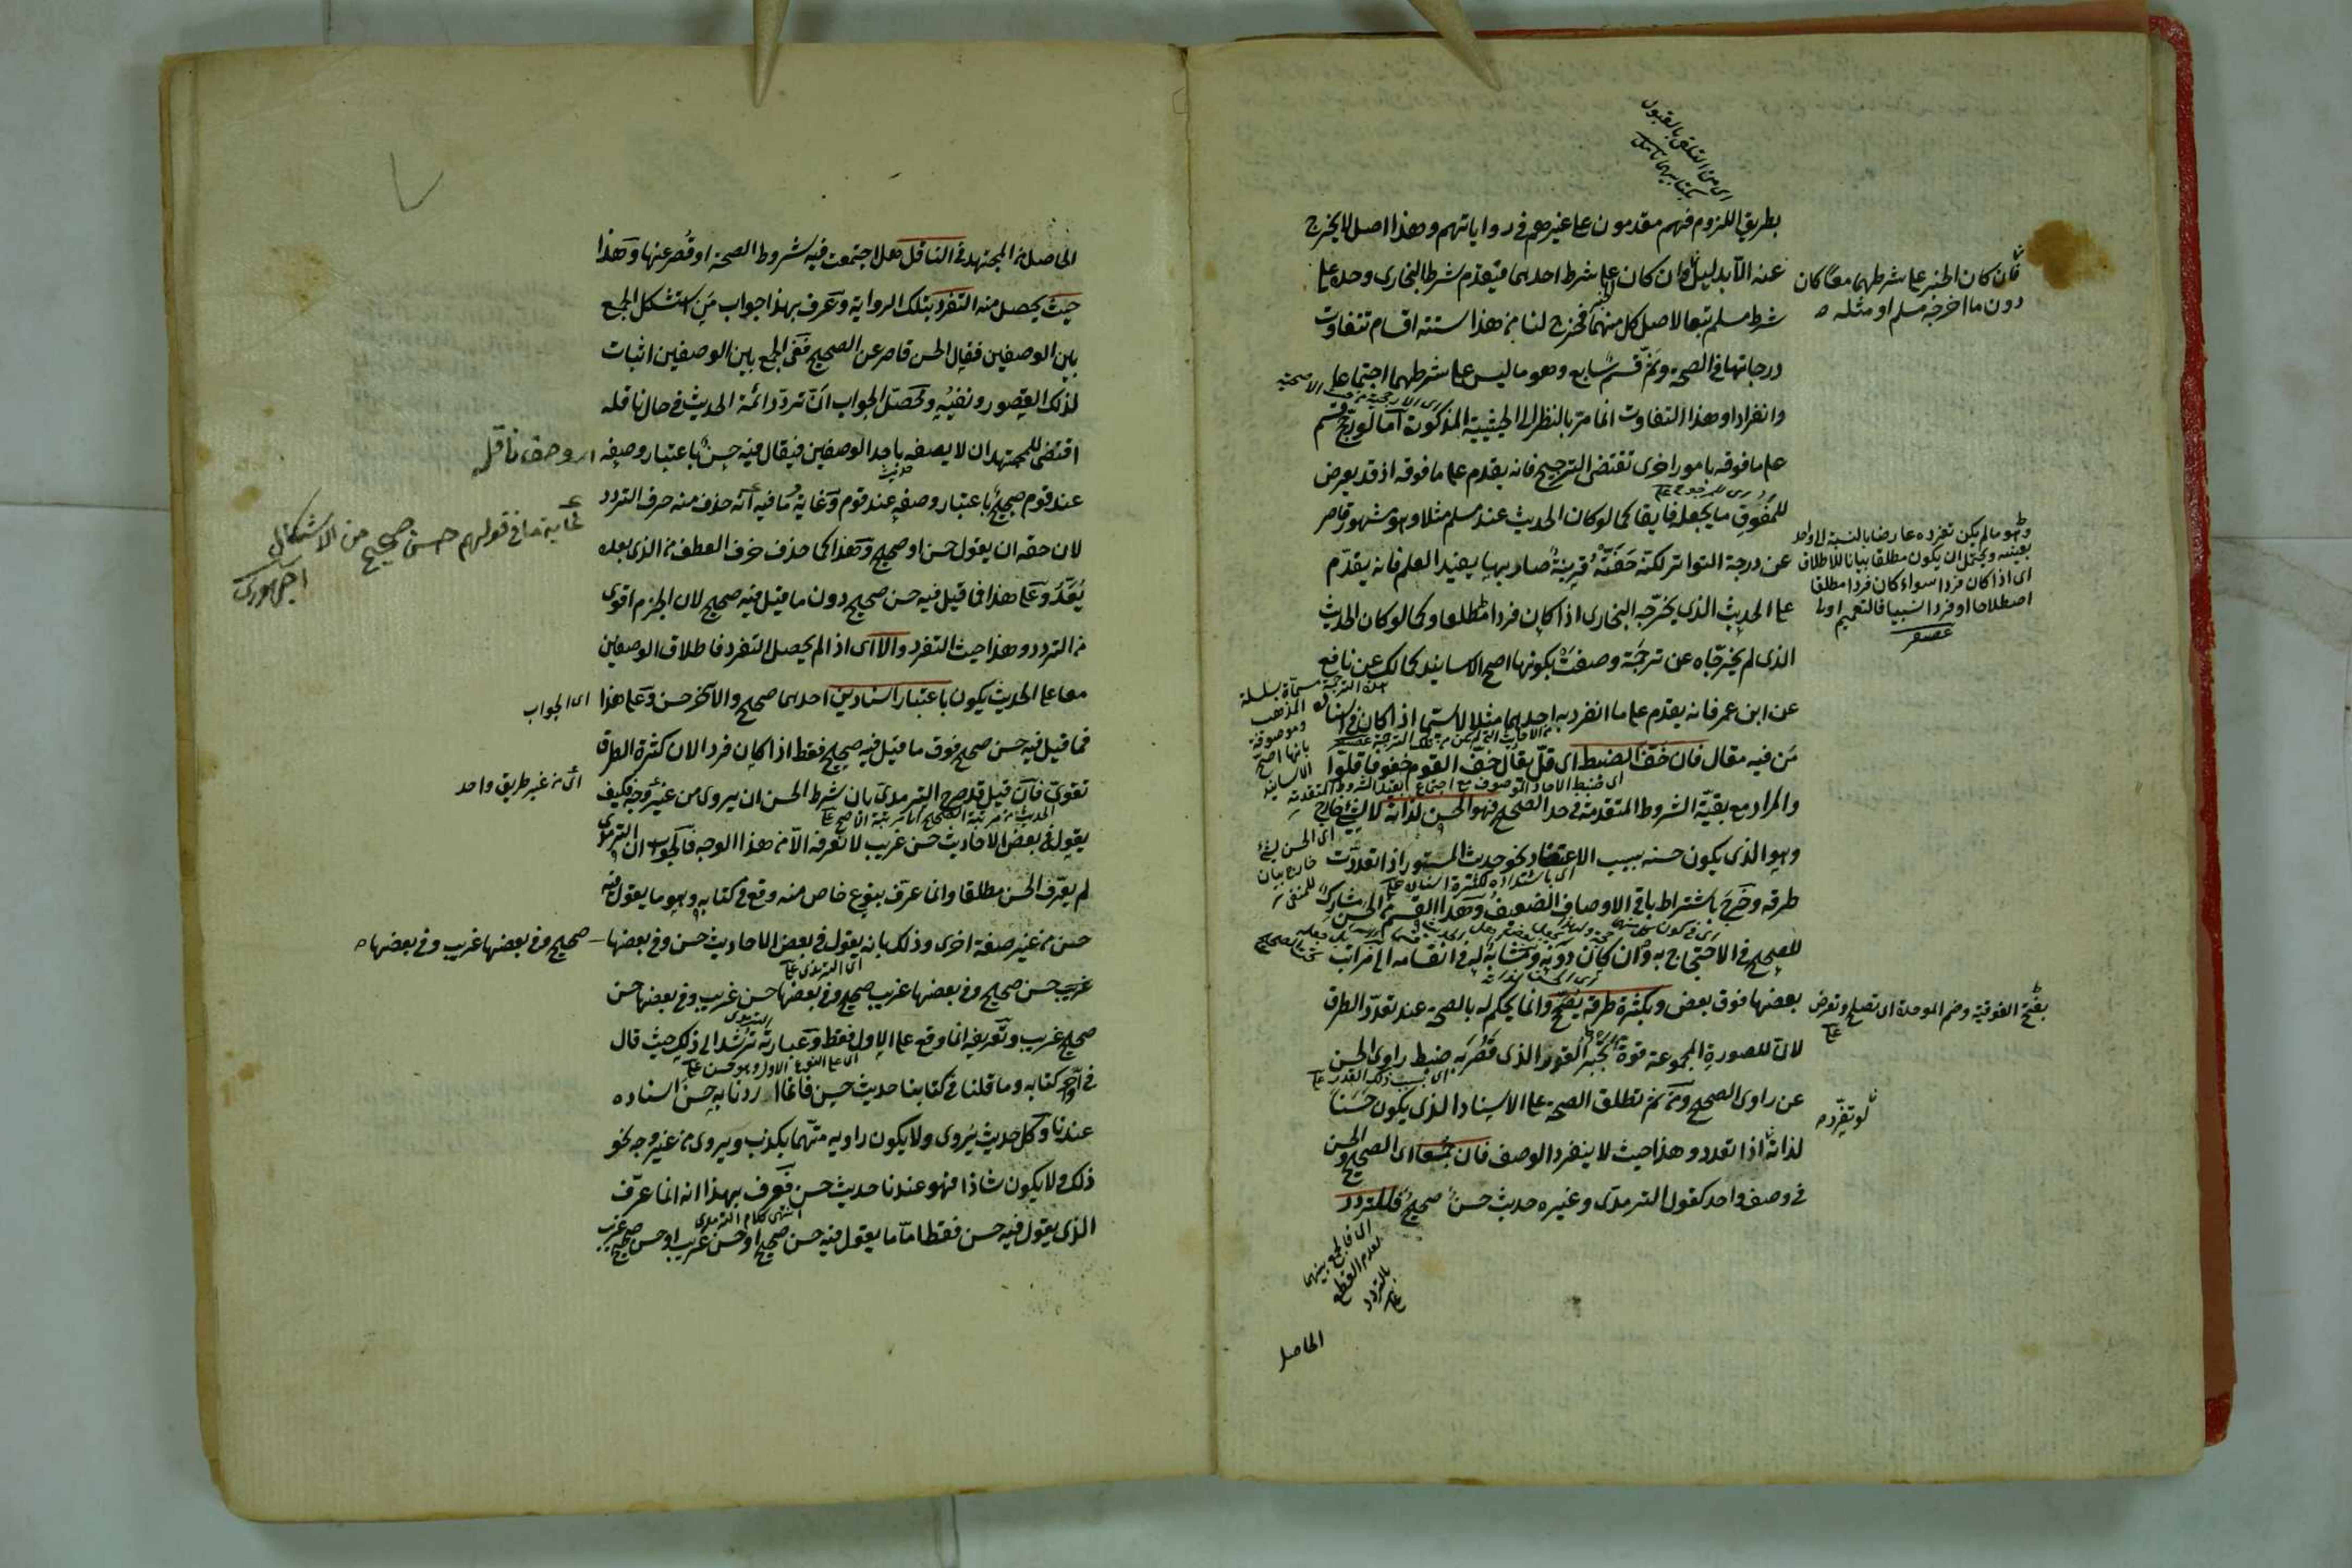 بطريق اللزوم فهم مقدمون على غيرهم في رواياتهم وهذا اصل لا يخرج
عنه الا بدليل وان كان الخبر على شرط احدهما فيقدم شرط البخارى وحده على
شرط مسلم تبعا لاصل كل منهما فخرج لنا من هذا ستة اقسام تتفاوت
درجاتها في الصحة وثم قسم سابع وهو ما ليس على شرطهما اجتماعا
وانفرادا وهذا التفاوت انما هو بالنظر الى الحيثية المذكورة اما لو رجح قسم
على ما فوقه بامور اخرى تقتضى الترجيح فانه يقدم على ما فوقه اذ قد يعرض
للمفوق ما يجعله فايقا كما لو كان الحديث عند مسلم مثلا وهو مشهور قاصر
عن درجة التواتر لكنه حفته قرينة صار بها يفيد العلم فانه يقدم
على الحديث الذى يخرجه البخارى اذا كان فردا مطلقا وكما لو كان الحديث
الذى لم يخرجاه عن ترجمة وصفت بكونها اصح الاسانيد كمالك عن نافع
عن ابن عمر فانه يقدم على ما انفرد به احدهما مثلا لاسيما اذا كان في اسناده
من فيه مقال فان خف الضبط اى قل يقال خف القوم خفوفا قلوا
والمراد مع بقية الشروط المتقدمة في حد الصحيح فهو الحسن لذاته لا لشئ خارج
وهو الذى يكون حسنه بسبب الاعتضاد نحو حديث المستور اذا تعددت
طرقه وخرج باشتراط باقى الاوصاف الضعيف وهذا القسم من الحسن مشارك
للصحيح في الاحتجاج به وان كان دونه ومشابه له في انقسامه الى مراتب
بعضها فوق بعض وبكثرة طرقه يصحح وانما يحكم له بالصحة عند تعدد الطرق
لان للصورة المجموعة قوة تجبر القدر الذى قصر به ضبط راوى الحسن
عن راوى الصحيح ومن ثم تطلق الصحة على الاسناد الذى يكون حسنا
لذاته اذا تعدد وهذا حيث لا ينفرد الوصف فان جمعا اى الصحيح والحسن
في وصف واحد كقول الترمذى وغيره حديث حسن صحيح فللتردد
اى من التلقى بالقبول
لكتابيهما تأمل
فان كان الخبر على شرطهما معا كان
دون ما اخرجه مسلم او مثله
وهو ما لم يكن تفرده عارضا بالنسبة لواحد
بعينه ويحتمل ان يكون مطلقا بيانا للاطلاق
اى اذا كان فردا سواء كان فردا مطلقا
اصطلاحا او فردا نسبيا فالتعميم اولى
بفتح الفوقية وضم الموحدة اى تصلح وتعرض
لو تفرد
اى فالجمع بينهما
لعدم القطع
بالتردد
الحاصل
الحاصل من المجتهد في الناقل هل اجتمعت فيه شروط الصحة او قصر عنها وهذا
حيث يحصل منه التفرد بتلك الرواية وعرف بهذا جواب من استشكل الجمع
بين الوصفين فقال الحسن قاصر عن الصحيح ففى الجمع بين الوصفين اثبات
لذلك القصور ونفيه ومحصل الجواب ان تردد ائمة الحديث في حال ناقله
اقتضى للمجتهد ان لا يصفه باحد الوصفين فيقال فيه حسن باعتبار وصفه
عند قوم صحيح باعتبار وصفه عند قوم وغاية ما فيه انه حذف منه حرف التردد
لان حقه ان يقول حسن او صحيح وهذا كما حذف حرف العطف من الذى بعده
يعد وعلى هذا فما قيل فيه حسن صحيح دون ما قيل فيه صحيح لان الجزم اقوى
من التردد وهذا حيث التفرد والا اى اذا لم يحصل التفرد فاطلاق الوصفين
معا على الحديث يكون باعتبار اسنادين احدهما صحيح والآخر حسن وعلى هذا
فما قيل فيه حسن صحيح فوق ما قيل فيه صحيح فقط اذا كان فردا لان كثرة الطرق
تقوى فان قيل قد صرح الترمذى بان شرط الحسن ان يروى من غير وجه فكيف
يقول في بعض الاحاديث حسن غريب لا نعرفه الا من هذا الوجه فالجواب ان الترمذى
لم يعرف الحسن مطلقا وانما عرف بنوع خاص منه وقع في كتابه وهو ما يقول فيه
حسن من غير صفة اخرى وذلك بانه يقول في بعض الاحاديث حسن وفي بعضها
صحيح وفي بعضها غريب وفي بعضها
غريب حسن صحيح وفي بعضها غريب صحيح وفي بعضها حسن غريب وفي بعضها حسن
صحيح غريب وتعريفه انما وقع على الاول فقط وعبارته ترشد الى ذلك حيث قال
في آخر كتابه وما قلنا في كتابنا حديث حسن فانما اردنا به حسن اسناده
عندنا وكل حديث يروى ولا يكون راويه متهما بكذب ويروى من غير وجه نحو
ذلك ولا يكون شاذا فهو عندنا حديث حسن فعرف بهذا انه انما عرف
الذى يقول فيه حسن فقط اما ما يقول فيه حسن صحيح او حسن غريب او حسن صحيح غريب
وصف ناقله
غاية ما في قولهم حسن صحيح من الاشكال
اجهورى
اى الجواب
اى من غير طريق واحد
اى الترمذى
انتهى كلام الترمذى